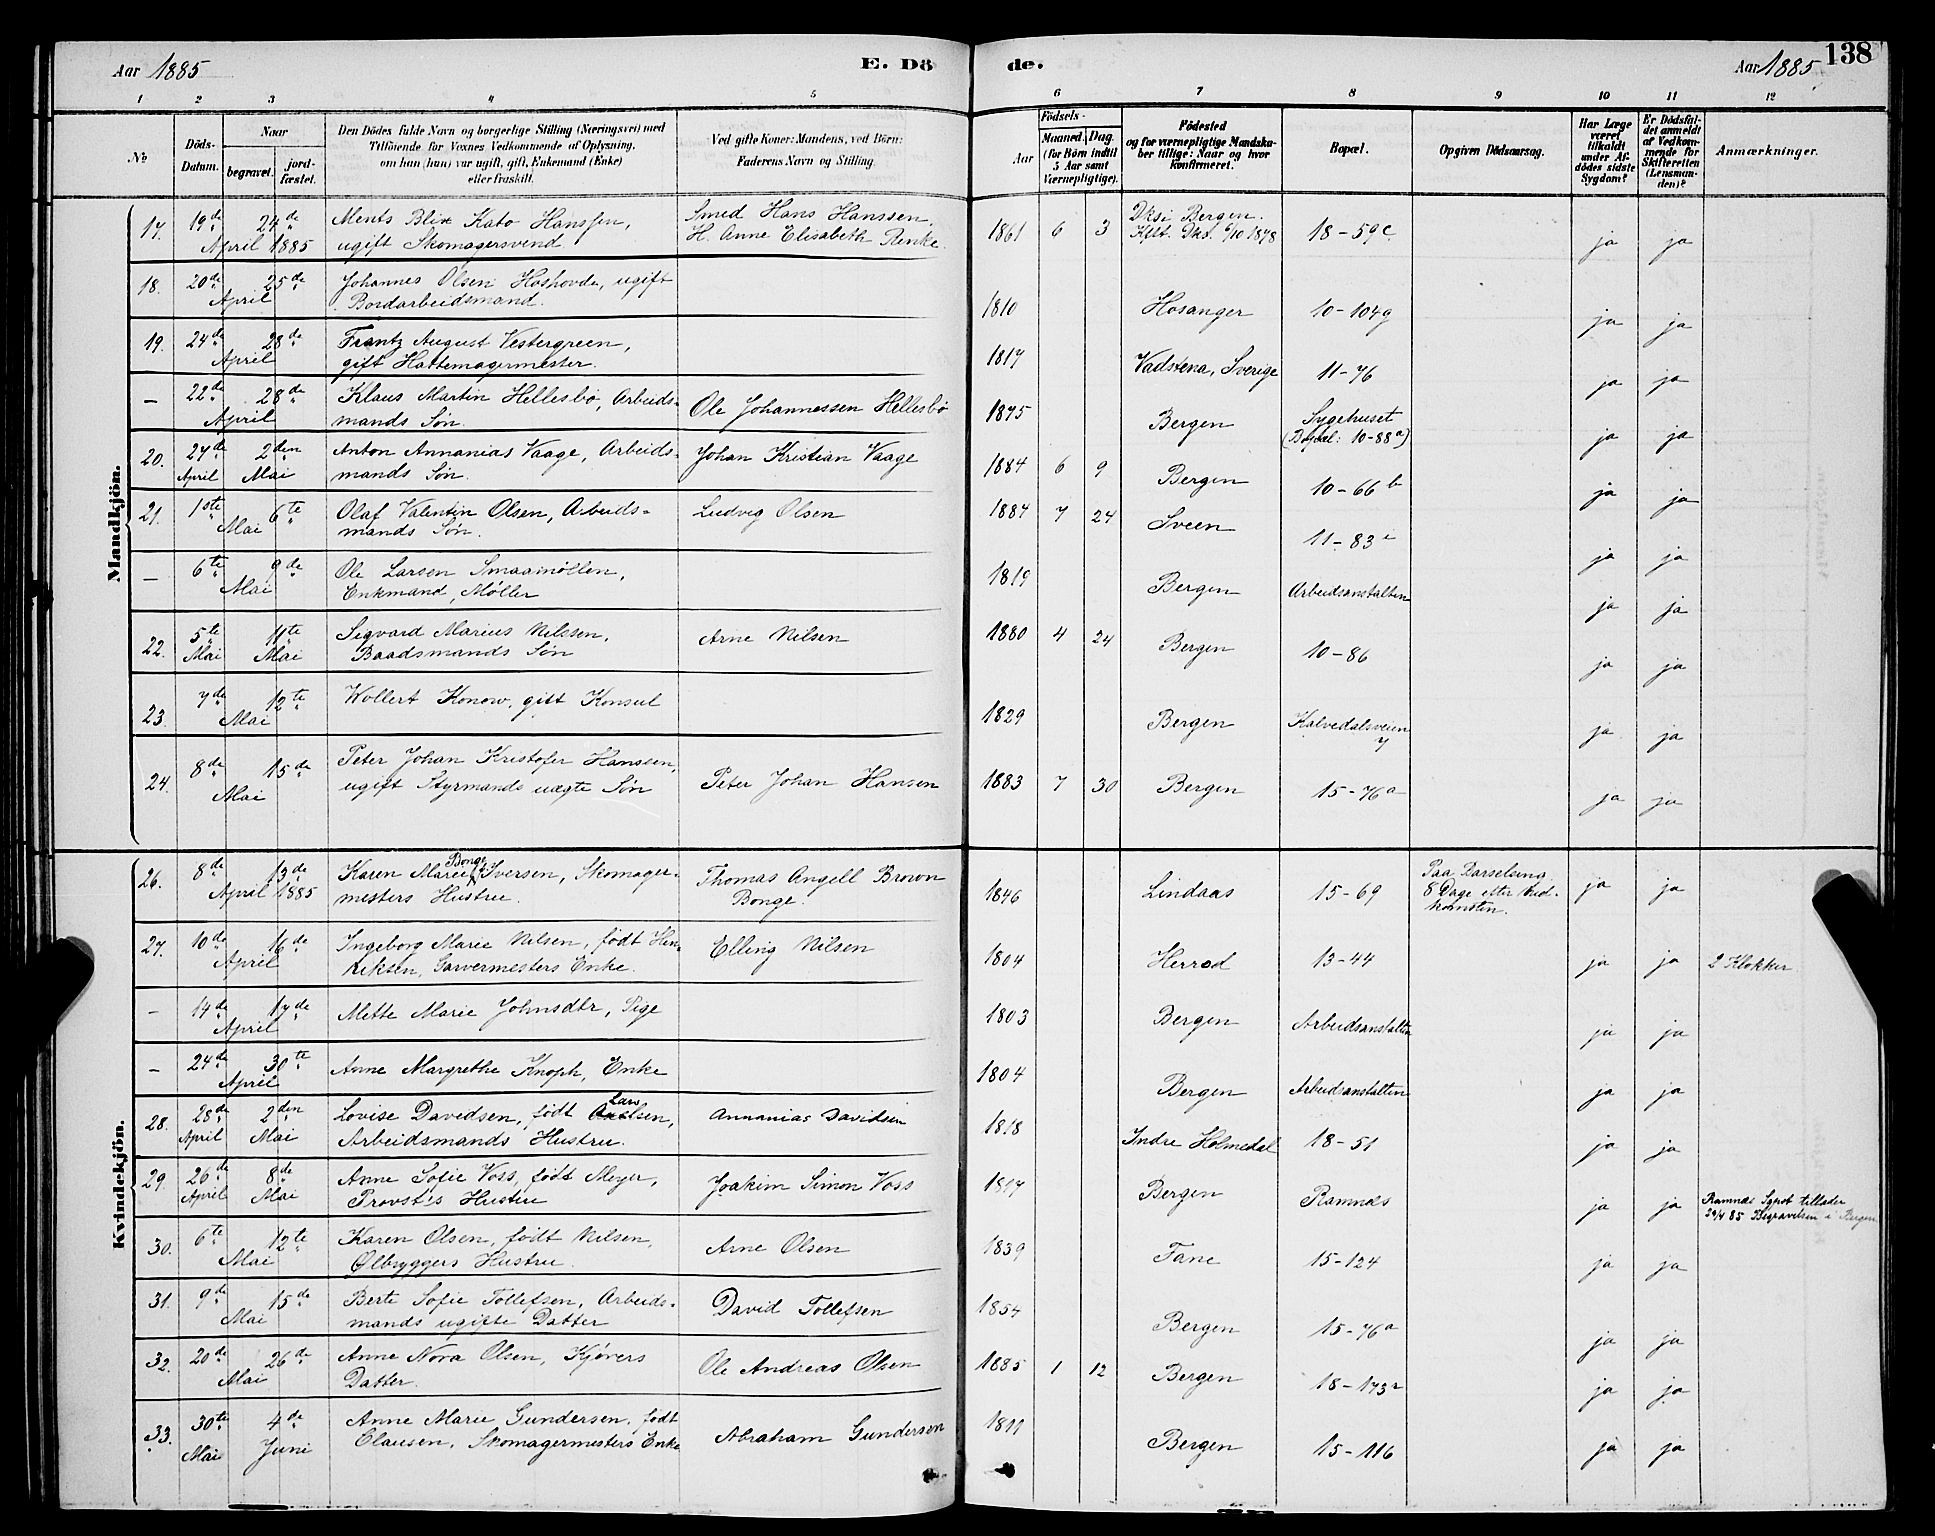 Aar 1885 E. Dö de. Aar 1885 138
1 2 3 4 5 6 7 8 9 10 11 12
No
Döds-Datum.
Naar
begravet.
jord-fæstet.
Den Dödes fulde Navn og borgerlige Stilling (Næringsvei) med
Tilföiende for Voxnes Vedkommende af Oplysning,
om han (hun) var ugift, gift, Enkemand (Enke)
eller fraskilt.
Ved gifte Koner: Mandens, ved Börn:
Faderens Navn og Stilling.
Födsels-
Aar
Maaned. Dag.
(for Börn indtil
5 Aar samt
Værnepligtige).
Födested
og for værnepligtige Mandska-
ber tillige: Naar og hvor
konfirmeret.
Bopæl.
Opgiven Dödsaarsag.
Har Læge
været
tilkaldt
under Af-
dödes sidste
Sygdom?
Er Dödsfal-
det anmeldt
af Vedkom-
mende for
Skifteretten
(Lensman-
den)?
Anmærkninger.
Mandkjön.
17. 19de 24de Ments Blix Kato Hanssen, Smed Hans Hanssen, 1861 6 3 Dksi Bergen. 18-59c ja ja
April 1885 ugift Skomagersvend H. Anne Elisabeth Renke. Kft. Dks. 6/10 1878
18. 20de 25de Johannes Olsen Hoshovde, ugift 1810 Hosanger 10-104g ja ja
April Bordarbeidsmand.
19. 24de 28de Frantz August Vestergreen, 1817 Vadstena, Sverige 11-76 ja ja
April gift Hattemagermester.
– 22de 28de Klaus Martin Hellesbö, Arbeids- Ole Johannessen Hellesbö 1875 Bergen Sygehuset ja ja
April mands Søn. (Bopæl: 10-88a)
20. 27de 2den Anton Annanias Vaage, Arbeids- Johan Kristian Vaage 1884 6 9 Bergen 10-66b ja ja
April Mai mands Søn.
21. 1ste 6te Olaf Valentin Olsen, Arbeids- Ludvig Olsen 1884 7 24 Sveen 11-83i ja ja
Mai mands Søn.
– 6te 9de Ole Larsen Smaamöllen, 1819 Bergen Arbeidsanstalten ja ja
Mai Enkmand, Møller
22. 5te 11te Sigvard Marius Nilssen, Arne Nilsen 1880 4 24 Bergen 10-86 ja ja
Mai Mai Baadsmands Søn
23. 7de 12te Wollert Konow, gift Konsul 1829 Bergen Kalvedalsveien ja ja
Mai 7
24. 8de 15de Peter Johan Kristofer Hanssen, Peter Johan Hansen 1883 7 30 Bergen 15-76a ja ja
Mai ugift Styrmands uægte Søn
Kvindekjön.
26. 8de 13de Karen Marie Bonge Iversen, Skomager- Thomas Angell Brown 1846 Lindaas 15-69 Paa Barselseng ja ja
April 1885 mesters Hustru. Bonge. 8 Dage efter Ned-
komsten.
27. 10de 16de Ingeborg Marie Nilsen, født Hen- Elling Nilsen 1804 Herrød 13-44 ja ja 2 Klokker
April riksen, Garvermesters Enke.
– 14de 17de Mette Marie Johnsdtr, Pige 1803 Bergen Arbeidsanstalten ja ja
April
– 24de 30te Anne Margrethe Knoph, Enke 1804 Bergen Arbeidsanstalten ja ja
April
28. 28de 2den Lovise Davedsen, født Lars Annanias Davidsen 1818 Indre Holmedal 18-51 ja ja
April Mai Arbeidsmands Hustru.
29. 26de 8de Anne Sofie Voss, født Meyer, Joakim Simon Voss 1817 Bergen Ramnæs ja ja Ramnæs Sgpst. tillader
April Mai Provst's Hustru 29/4 85 Begravelsen i Bergen
30. 6te 12te Karen Olsen, født Nilsen, Arne Olsen 1839 Fane 15-124 ja ja
Mai Ølbryggers Hustru.
31. 9de 15de Berte Sofie Tollefsen, Arbeids- David Tollefsen 1854 Bergen 15-76a ja ja
Mai mands ugifte Datter
32. 20de 26de Anne Nora Olsen, Kjørers Ole Andreas Olsen 1885 1 12 Bergen 18-173r ja ja.
Mai Datter.
33. 30te 4de Anne Marie Gundersen, født Abraham Gundersen 1811 Bergen 15-116 ja ja
Mai Juni Clausen, Skomagermesters Enke